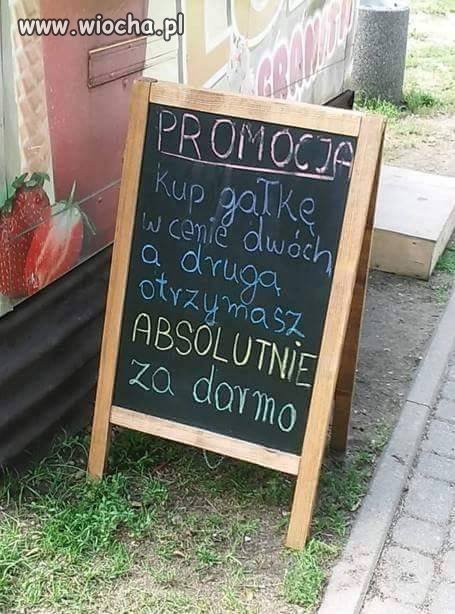 www.wiocha.pl
PROMOCJA
kup gałkę
w cenie dwóch
a drugą
otrzymasz
ABSOLUTNIE
za darmo